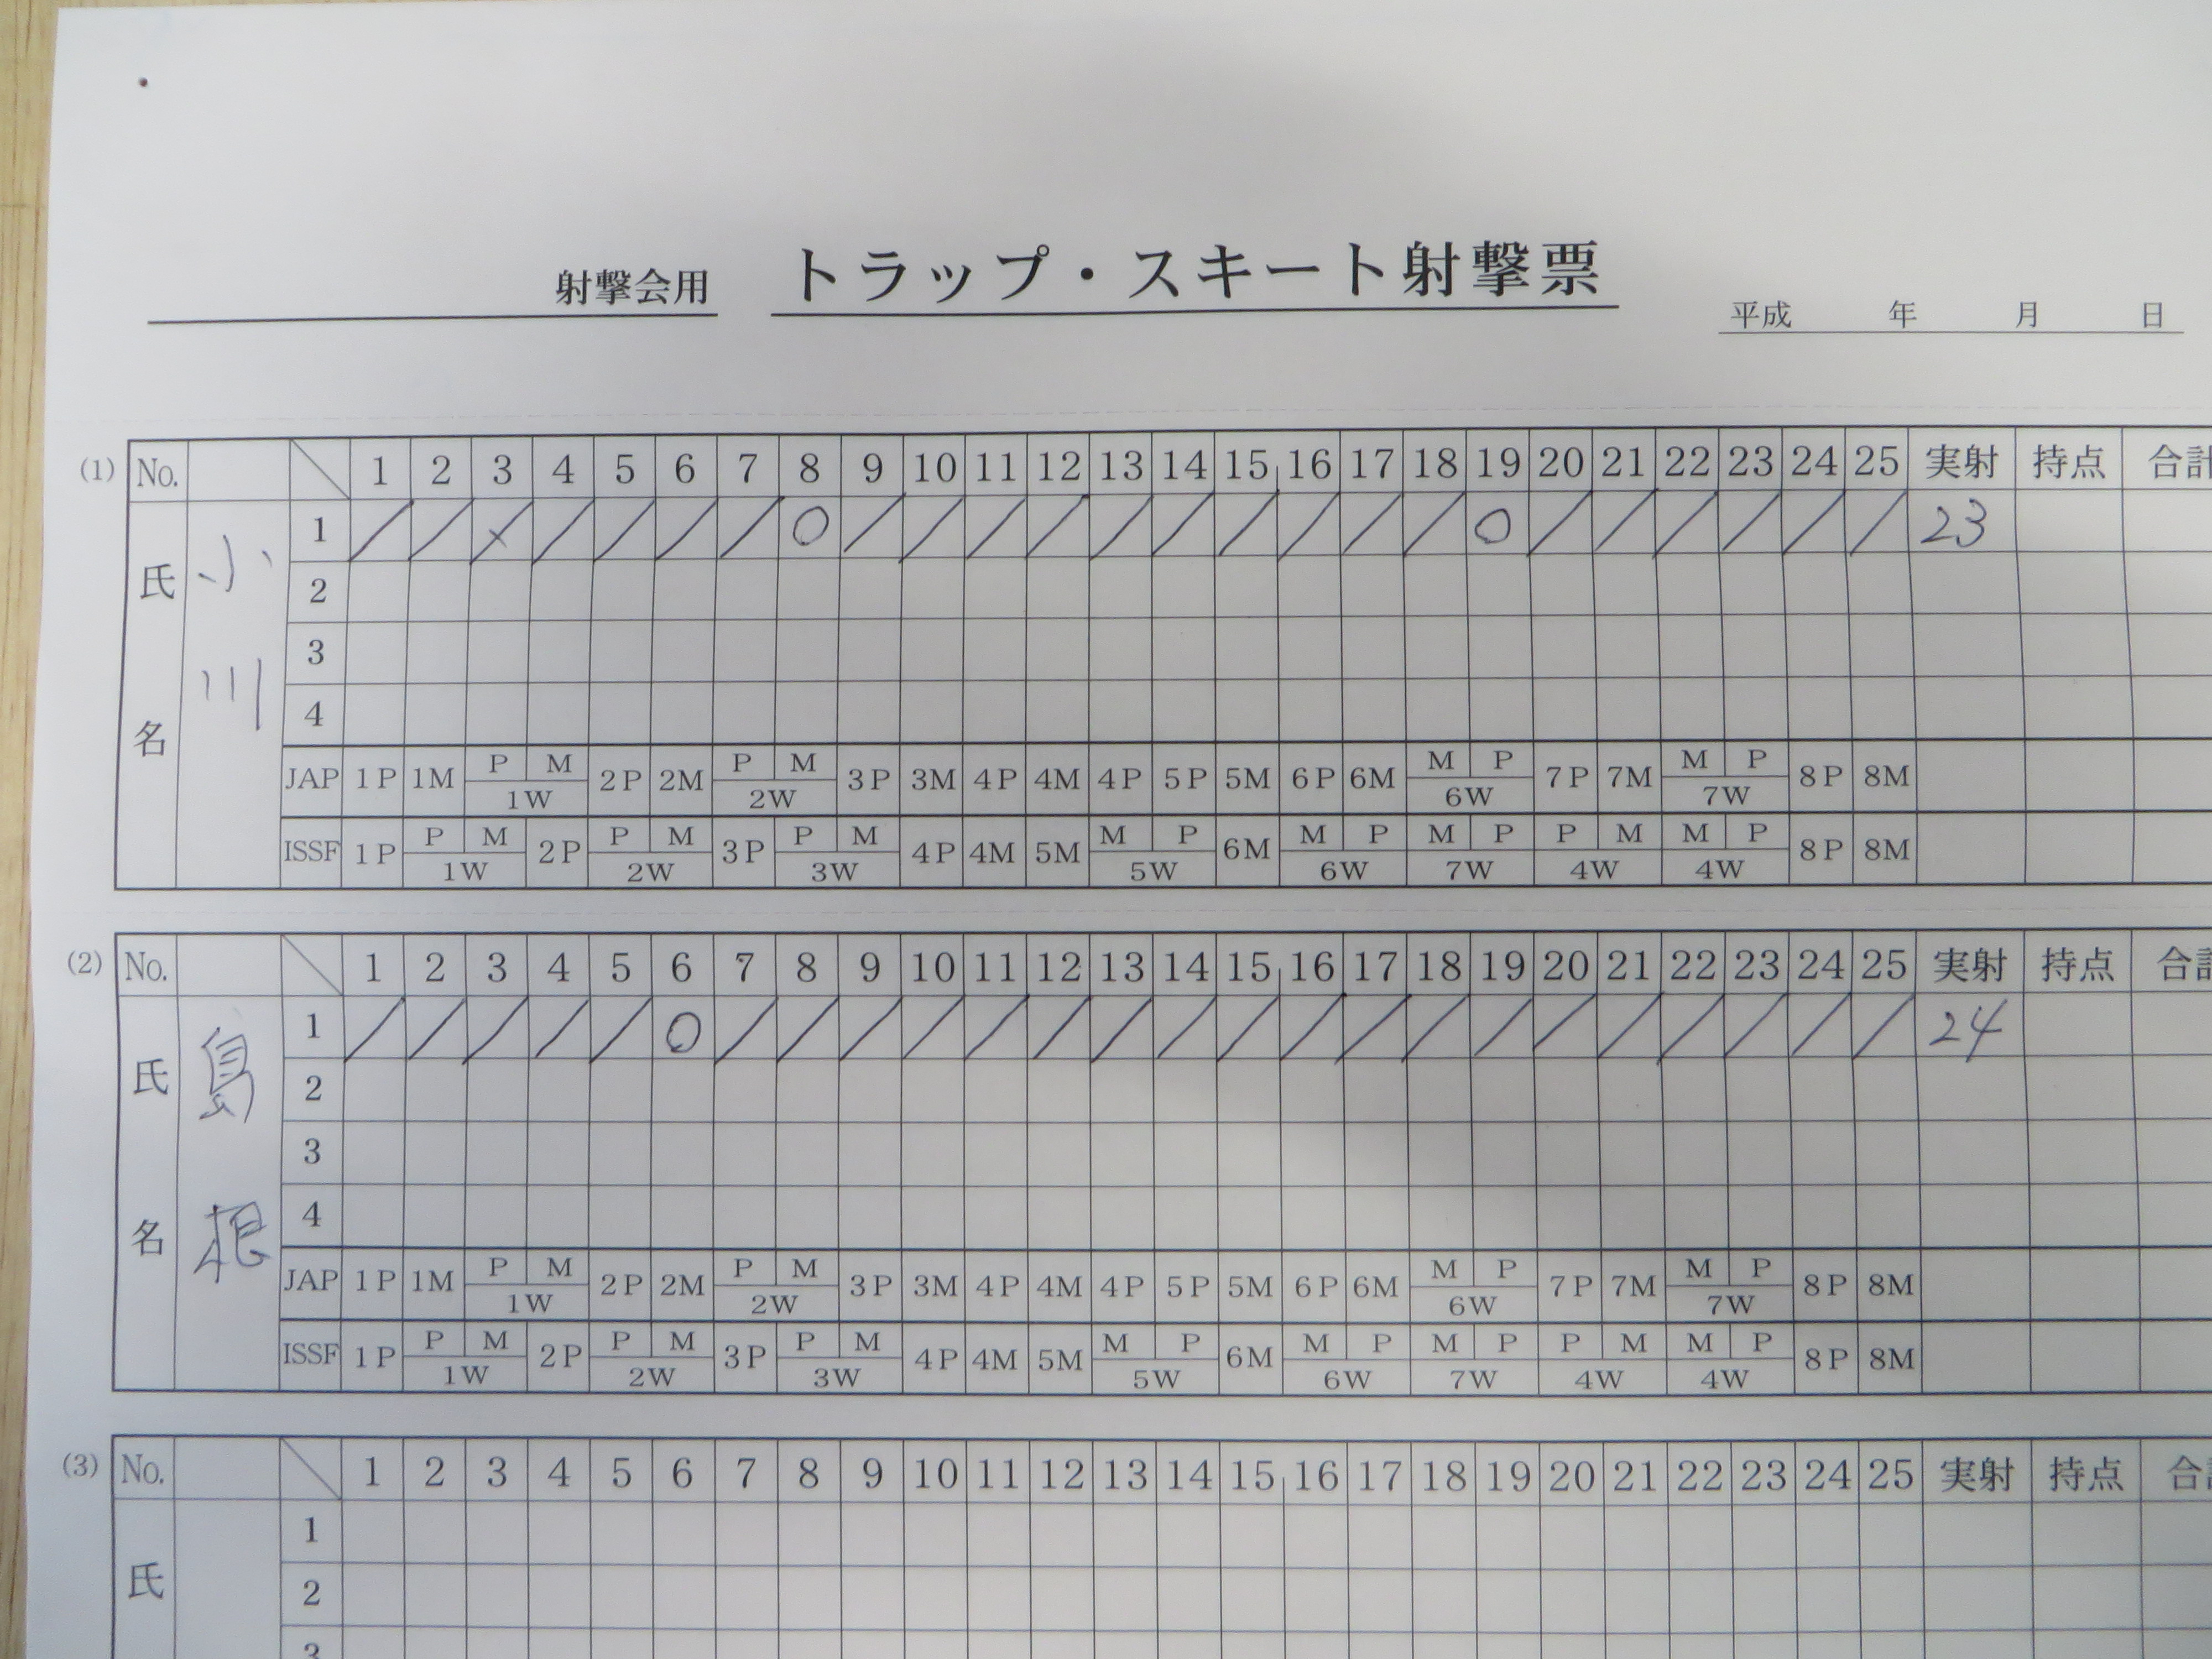 射撃会用 トラップ・スキート射撃票 平成 年 月 日
(1) No. 1 2 3 4 5 6 7 8 9 10 11 12 13 14 15 16 17 18 19 20 21 22 23 24 25 実射 持点 合計
氏名 小川
1 / / X / / / / O / / / / / / / / / / O / / / / / / 23
2
3
4
JAP 1P 1M P M 1W 2P 2M P M 2W 3P 3M 4P 4M 4P 5P 5M 6P 6M M P 6W 7P 7M M P 7W 8P 8M
ISSF 1P P M 1W 2P P M 2W 3P P M 3W 4P 4M 5M M P 5W 6M M P 6W M P 7W P M 4W M P 4W 8P 8M
(2) No. 1 2 3 4 5 6 7 8 9 10 11 12 13 14 15 16 17 18 19 20 21 22 23 24 25 実射 持点 合計
氏名 島根
1 / / / / / O / / / / / / / / / / / / / / / / / / / 24
2
3
4
JAP 1P 1M P M 1W 2P 2M P M 2W 3P 3M 4P 4M 4P 5P 5M 6P 6M M P 6W 7P 7M M P 7W 8P 8M
ISSF 1P P M 1W 2P P M 2W 3P P M 3W 4P 4M 5M M P 5W 6M M P 6W M P 7W P M 4W M P 4W 8P 8M
(3) No. 1 2 3 4 5 6 7 8 9 10 11 12 13 14 15 16 17 18 19 20 21 22 23 24 25 実射 持点 合
氏
1
2
3